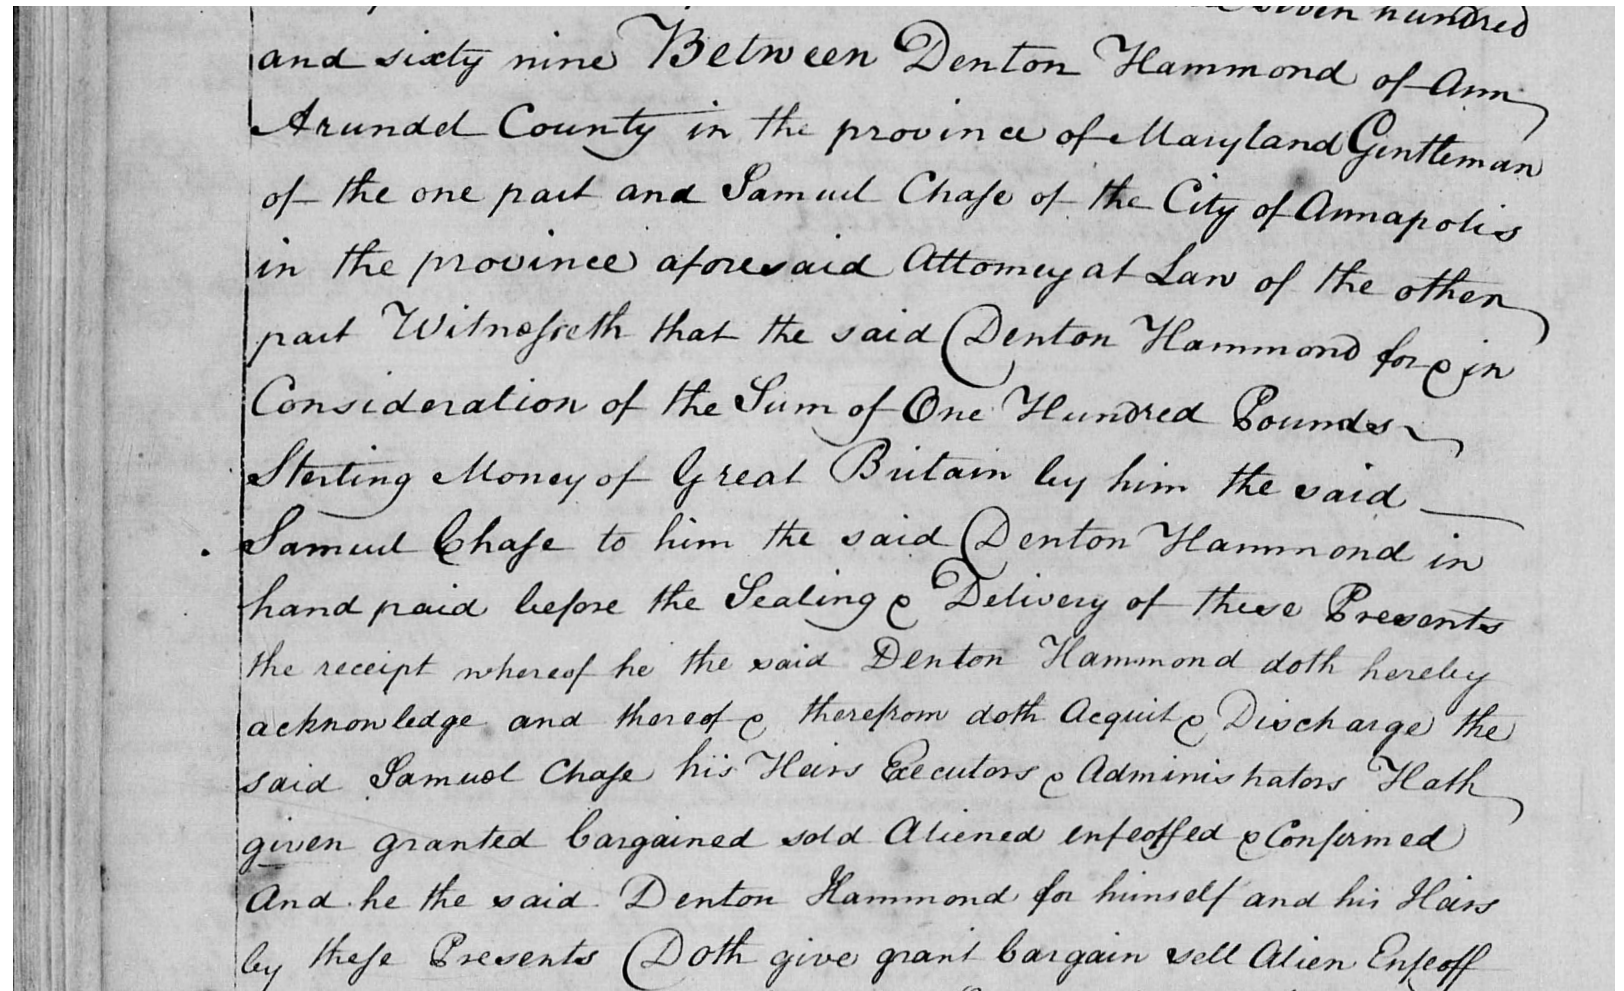 seven hundred
and sixty nine Between Denton Hammond of Ann
Arundel County in the province of Maryland Gentleman
of the one part and Samuel Chase of the City of Annapolis
in the province aforesaid Attorney at Law of the other
part Witnesseth that the said Denton Hammond for & in
Consideration of the Sum of One Hundred Pounds
Sterling Money of Great Britain by him the said
Samuel Chase to him the said Denton Hammond in
hand paid before the Sealing & Delivery of these Presents
the receipt whereof he the said Denton Hammond doth hereby
acknowledge and thereof & therefrom doth Acquit & Discharge the
said Samuel Chase his Heirs Executors & Administrators Hath
given granted bargained sold Aliened enfeoffed & Confirmed
And he the said Denton Hammond for himself and his Heirs
by these Presents Doth give grant bargain sell Alien Enfeoff